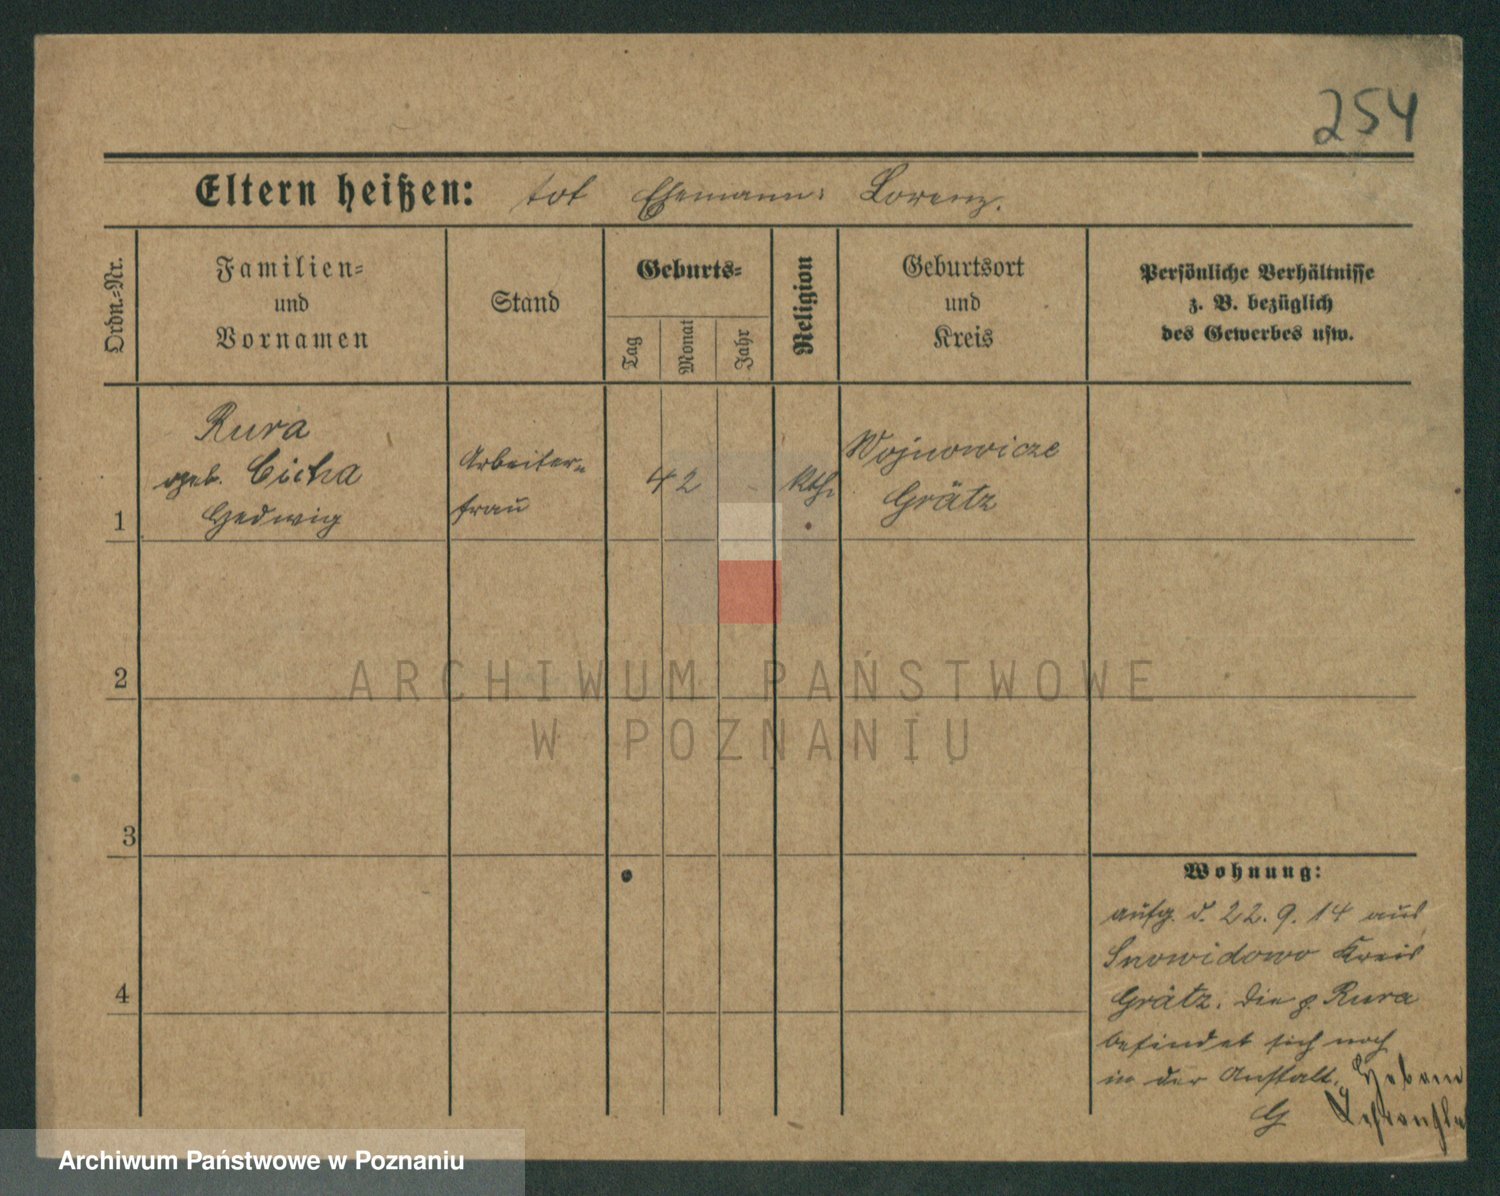 254
Eltern heißen: tot Ehemann: Lorenz.
Ordn.-Nr.
Familien-
und
Vornamen
Stand
Geburts-
Tag
Monat
Jahr
Religion
Geburtsort
und
Kreis
Persönliche Verhältnisse
z. B. bezüglich
des Gewerbes usw.
1
Rura
geb. Cicha
Hedwig
Arbeiter-
frau
42
kth.
Wojnowicze
Grätz
2
3
4
Wohnung:
aufg. d. 22. 9. 14 aus
Snowidowo Kreis
Grätz. Die p. Rura
befindet sich noch
in der Anstalt. Hebam
G
ARCHIWUM PAŃSTWOWE
W POZNANIU
Archiwum Państwowe w Poznaniu